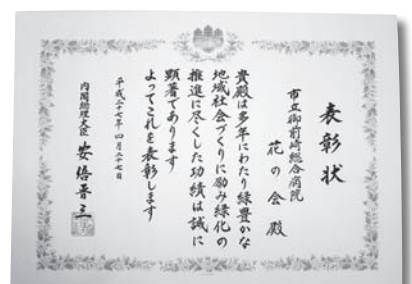 表彰状
市立御前崎総合病院
花の会 殿
貴殿は多年にわたり緑豊かな
地域社会づくりに励み緑化の
推進に尽くした功績は誠に
顕著であります
よってこれを表彰します
平成二十七年四月二十七日
内閣総理大臣 安倍晋三